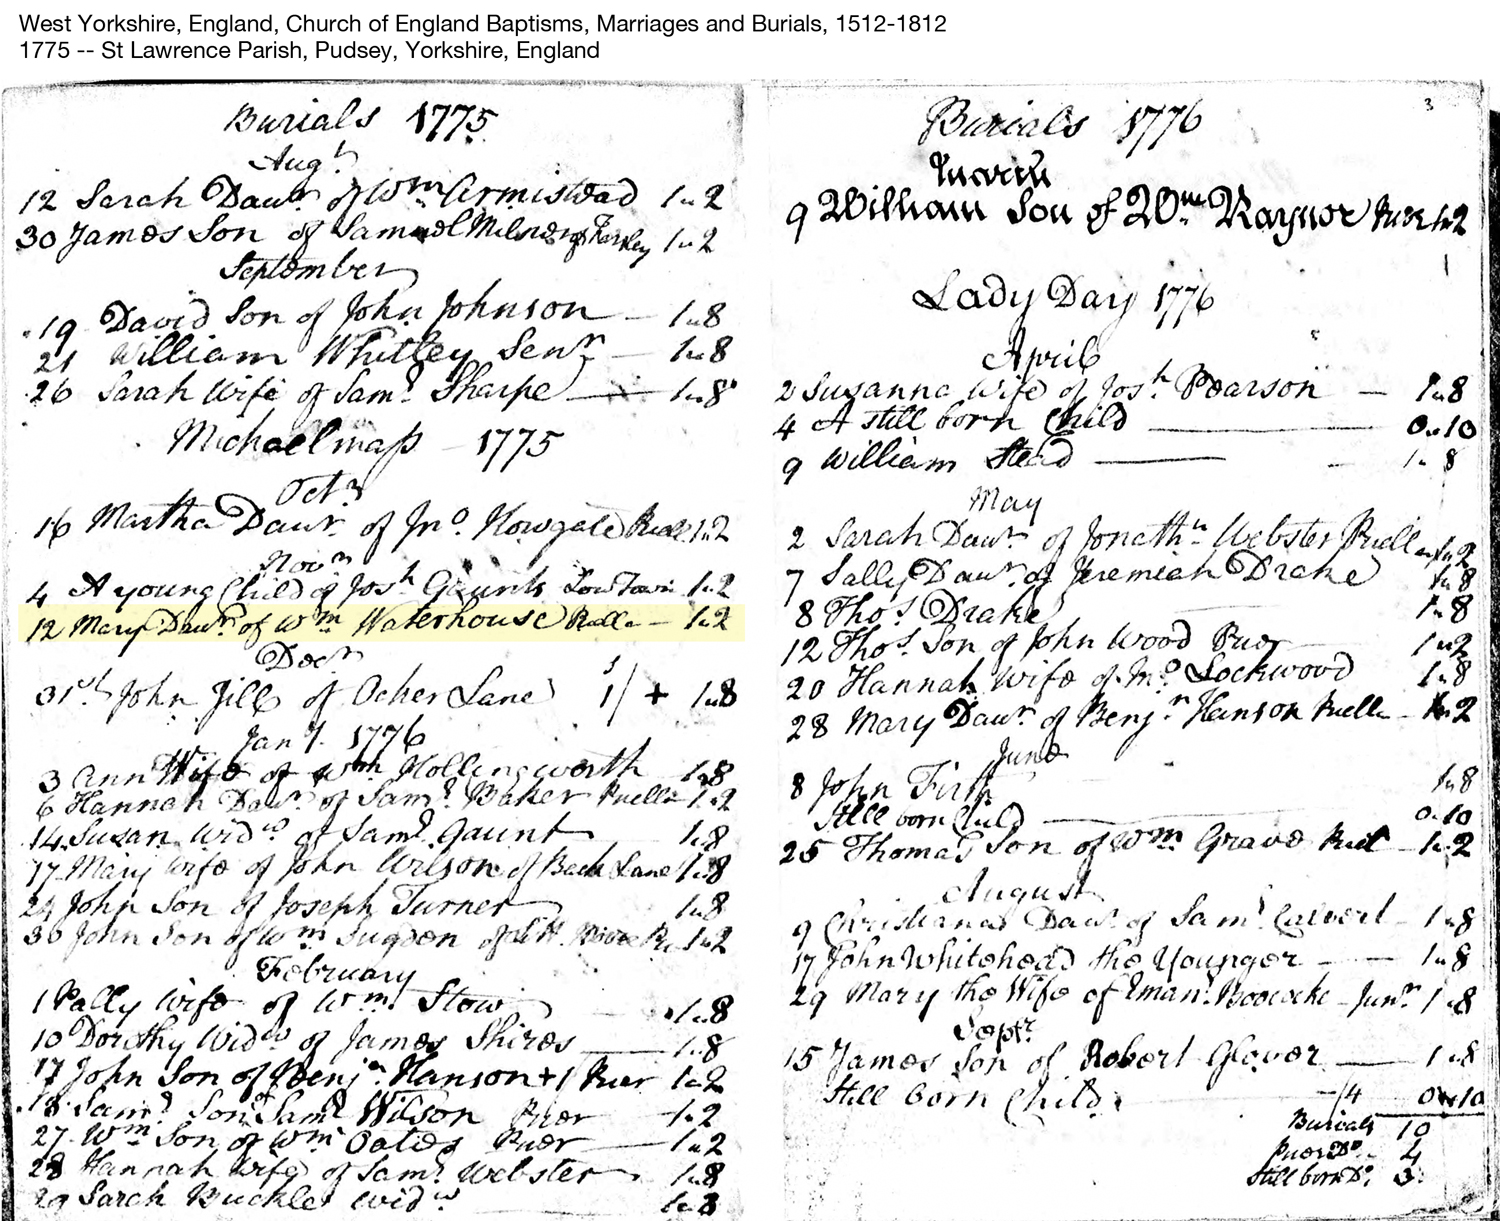 West Yorkshire, England, Church of England Baptisms, Marriages and Burials, 1512-1812
1775 -- St Lawrence Parish, Pudsey, Yorkshire, England
Burials 1775
Augt
12 Sarah Dawr of Wm Armistead 1 „ 2
30 James Son of Samuel Milner of Farsley 1 „ 2
September
19 David Son of John Johnson — 1 „ 8
21 William Whitley Senr — 1 „ 8
26 Sarah Wife of Saml Sharpe — 1 „ 8
Michaelmass 1775
Octr
16 Martha Dawr of Jno Howgate Puella 1 „ 2
Novr
4 A young Child of Josh Gaunts Low Town 1 „ 2
12 Mary Dawr of Wm Waterhouse Puella — 1 „ 2
Decr
31st John Gill of Ocher Lane 1/ + 1 „ 8
Jany 1776
3 Ann Wife of Wm Hollingworth 1 „ 8
6 Hannah Dawr of Saml Baker Puella 1 „ 2
14 Susan Widw of Saml Gaunt 1 „ 8
17 Mary Wife of John Wilson of Back Lane 1 „ 8
24 John Son of Joseph Turner 1 „ 8
30 John Son of Wm Sugden of 1 „ 2
February
1 Pally Wife of Wm Stow 1 „ 8
10 Dorothy Widw of James Shires — 1 „ 8
17 John Son of Benjn Hanson + 1 Puer 1 „ 2
18 Saml Son of Saml Wilson Puer — 1 „ 2
27 Wm Son of Wm Oates Puer — 1 „ 2
28 Hannah Wife of Saml Webster 1 „ 8
29 Sarah Buckle Widw 1 „ 8
3
Burials 1776
March
9 William Son of Wm Raynor Puer 1 „ 2
Lady Day 1776
April
2 Susanna Wife of Josh Pearson — 1 „ 8
4 A still born Child — 0 „ 10
9 William Stead — 1 „ 8
May
2 Sarah Dawr of Jonathn Webster Puella 1 „ 2
7 Sally Dawr of Jeremiah Drake 1 „ 8
8 Thos Drake 1 „ 8
12 Thos Son of John Wood Puer 1 „ 2
20 Hannah Wife of Jno Lockwood 1 „ 8
28 Mary Dawr of Benjn Hanson Puella — 1 „ 2
June
8 John Firth 1 „ 8
Still born Child — 0 „ 10
25 Thomas Son of Wm Grave Puer — 1 „ 2
August
9 Christiana Dawr of Saml Calvert — 1 „ 8
17 John Whitehead the Younger — 1 „ 8
29 Mary the Wife of Emanl Boococke Junr 1 „ 8
Septr
15 James Son of Robert Glover — 1 „ 8
Still born Child 0 „ 10
Burials 10
Puer Do 4
Still born Do 3